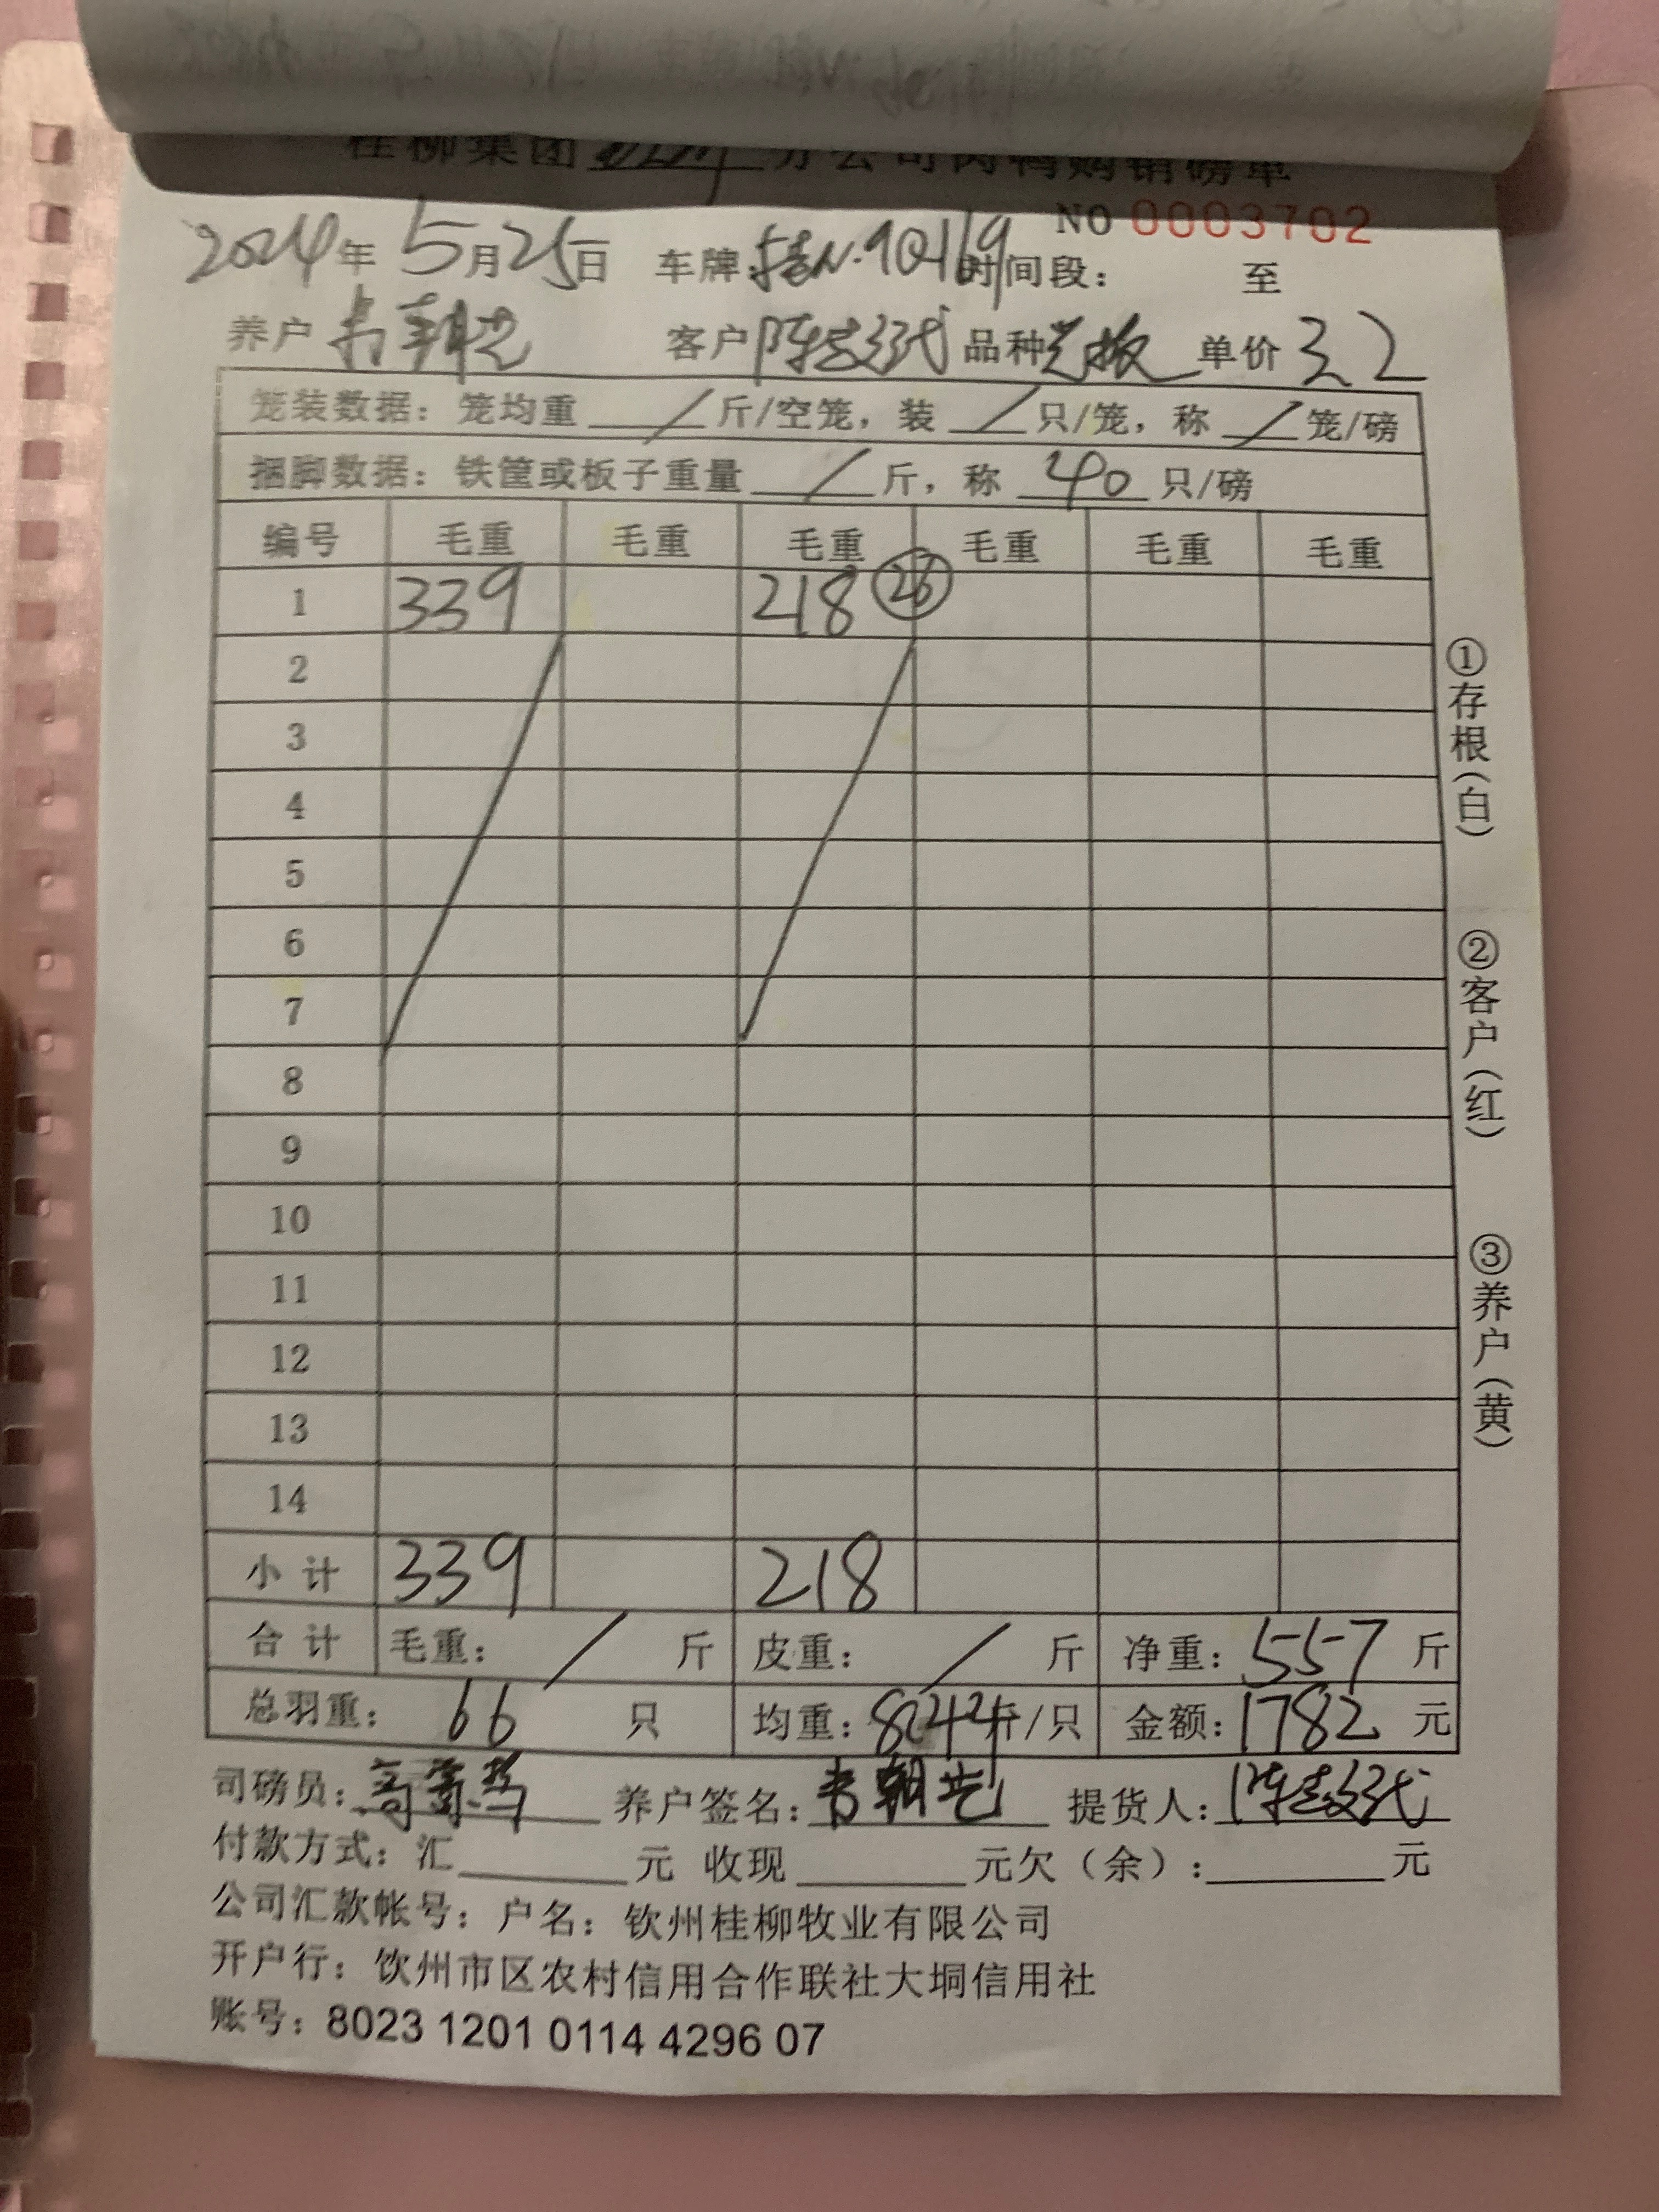 桂柳集团 分公司肉鸭购销磅单
NO 0003702
2024年 5月25日 车牌:桂N·9Q169 时间段: 至
养户 韦朝艺 客户 陈 品种 老板 单价 3.2
笼装数据: 笼均重 / 斤/空笼, 装 / 只/笼, 称 / 笼/磅
捆脚数据: 铁筐或板子重量 / 斤, 称 40 只/磅
编号 毛重 毛重 毛重 毛重 毛重 毛重
1 339 218 26
2
3
4
5
6
7
8
9
10
11
12
13
14
小计 339 218
合计 毛重: / 斤 皮重: / 斤 净重: 557 斤
总羽重: 66 只 均重: 8.44 斤/只 金额: 1782 元
司磅员: 养户签名: 韦朝艺 提货人: 陈
付款方式: 汇 元 收现 元欠(余): 元
公司汇款帐号: 户名: 钦州桂柳牧业有限公司
开户行: 饮州市区农村信用合作联社大垌信用社
账号: 8023 1201 0114 4296 07
①存根(白)
②客户(红)
③养户(黄)